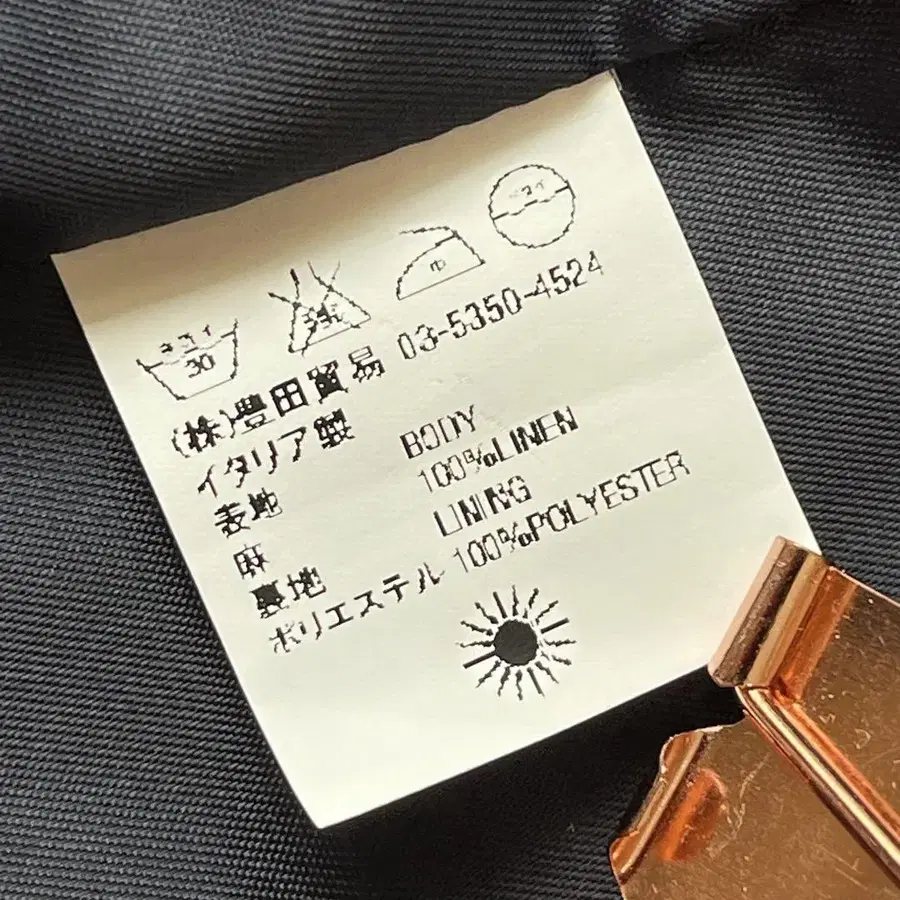 ネオイ
30
エンソ
サラシ
中
ドライ
(株)豊田貿易 03-5350-4524
イタリア製
表地 BODY
麻 100%LINEN
裏地 LINING
ポリエステル 100%POLYESTER